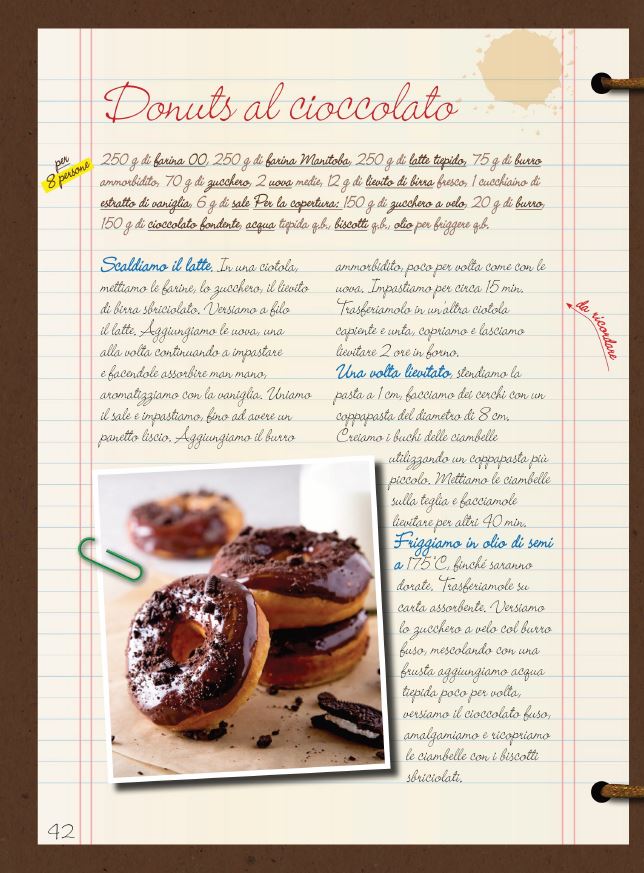 Donuts al cioccolato
per
8 persone
250 g di farina 00, 250 g di farina Manitoba, 250 g di latte tiepido, 75 g di burro
ammorbidito, 70 g di zucchero, 2 uova medie, 12 g di lievito di birra fresco, 1 cucchiaino di
estratto di vaniglia, 6 g di sale Per la copertura: 150 g di zucchero a velo, 20 g di burro,
150 g di cioccolato fondente, acqua tiepida q.b., biscotti q.b., olio per friggere q.b.
Scaldiamo il latte. In una ciotola,
mettiamo le farine, lo zucchero, il lievito
di birra sbriciolato. Versiamo a filo
il latte. Aggiungiamo le uova, una
alla volta continuando a impastare
e facendole assorbire man mano,
aromatizziamo con la vaniglia. Uniamo
il sale e impastiamo, fino ad avere un
panetto liscio. Aggiungiamo il burro
ammorbidito, poco per volta come con le
uova. Impastiamo per circa 15 min.
Trasferiamolo in un'altra ciotola
capiente e unta, copriamo e lasciamo
lievitare 2 ore in forno.
Una volta lievitato, stendiamo la
pasta a 1 cm, facciamo dei cerchi con un
coppapasta del diametro di 8 cm.
Creiamo i buchi delle ciambelle
utilizzando un coppapasta più
piccolo. Mettiamo le ciambelle
sulla teglia e facciamole
lievitare per altri 40 min.
Friggiamo in olio di semi
a 175°C, finché saranno
dorate. Trasferiamole su
carta assorbente. Versiamo
lo zucchero a velo col burro
fuso, mescolando con una
frusta aggiungiamo acqua
tiepida poco per volta,
versiamo il cioccolato fuso,
amalgamiamo e ricopriamo
le ciambelle con i biscotti
sbriciolati.
da ricordare
42